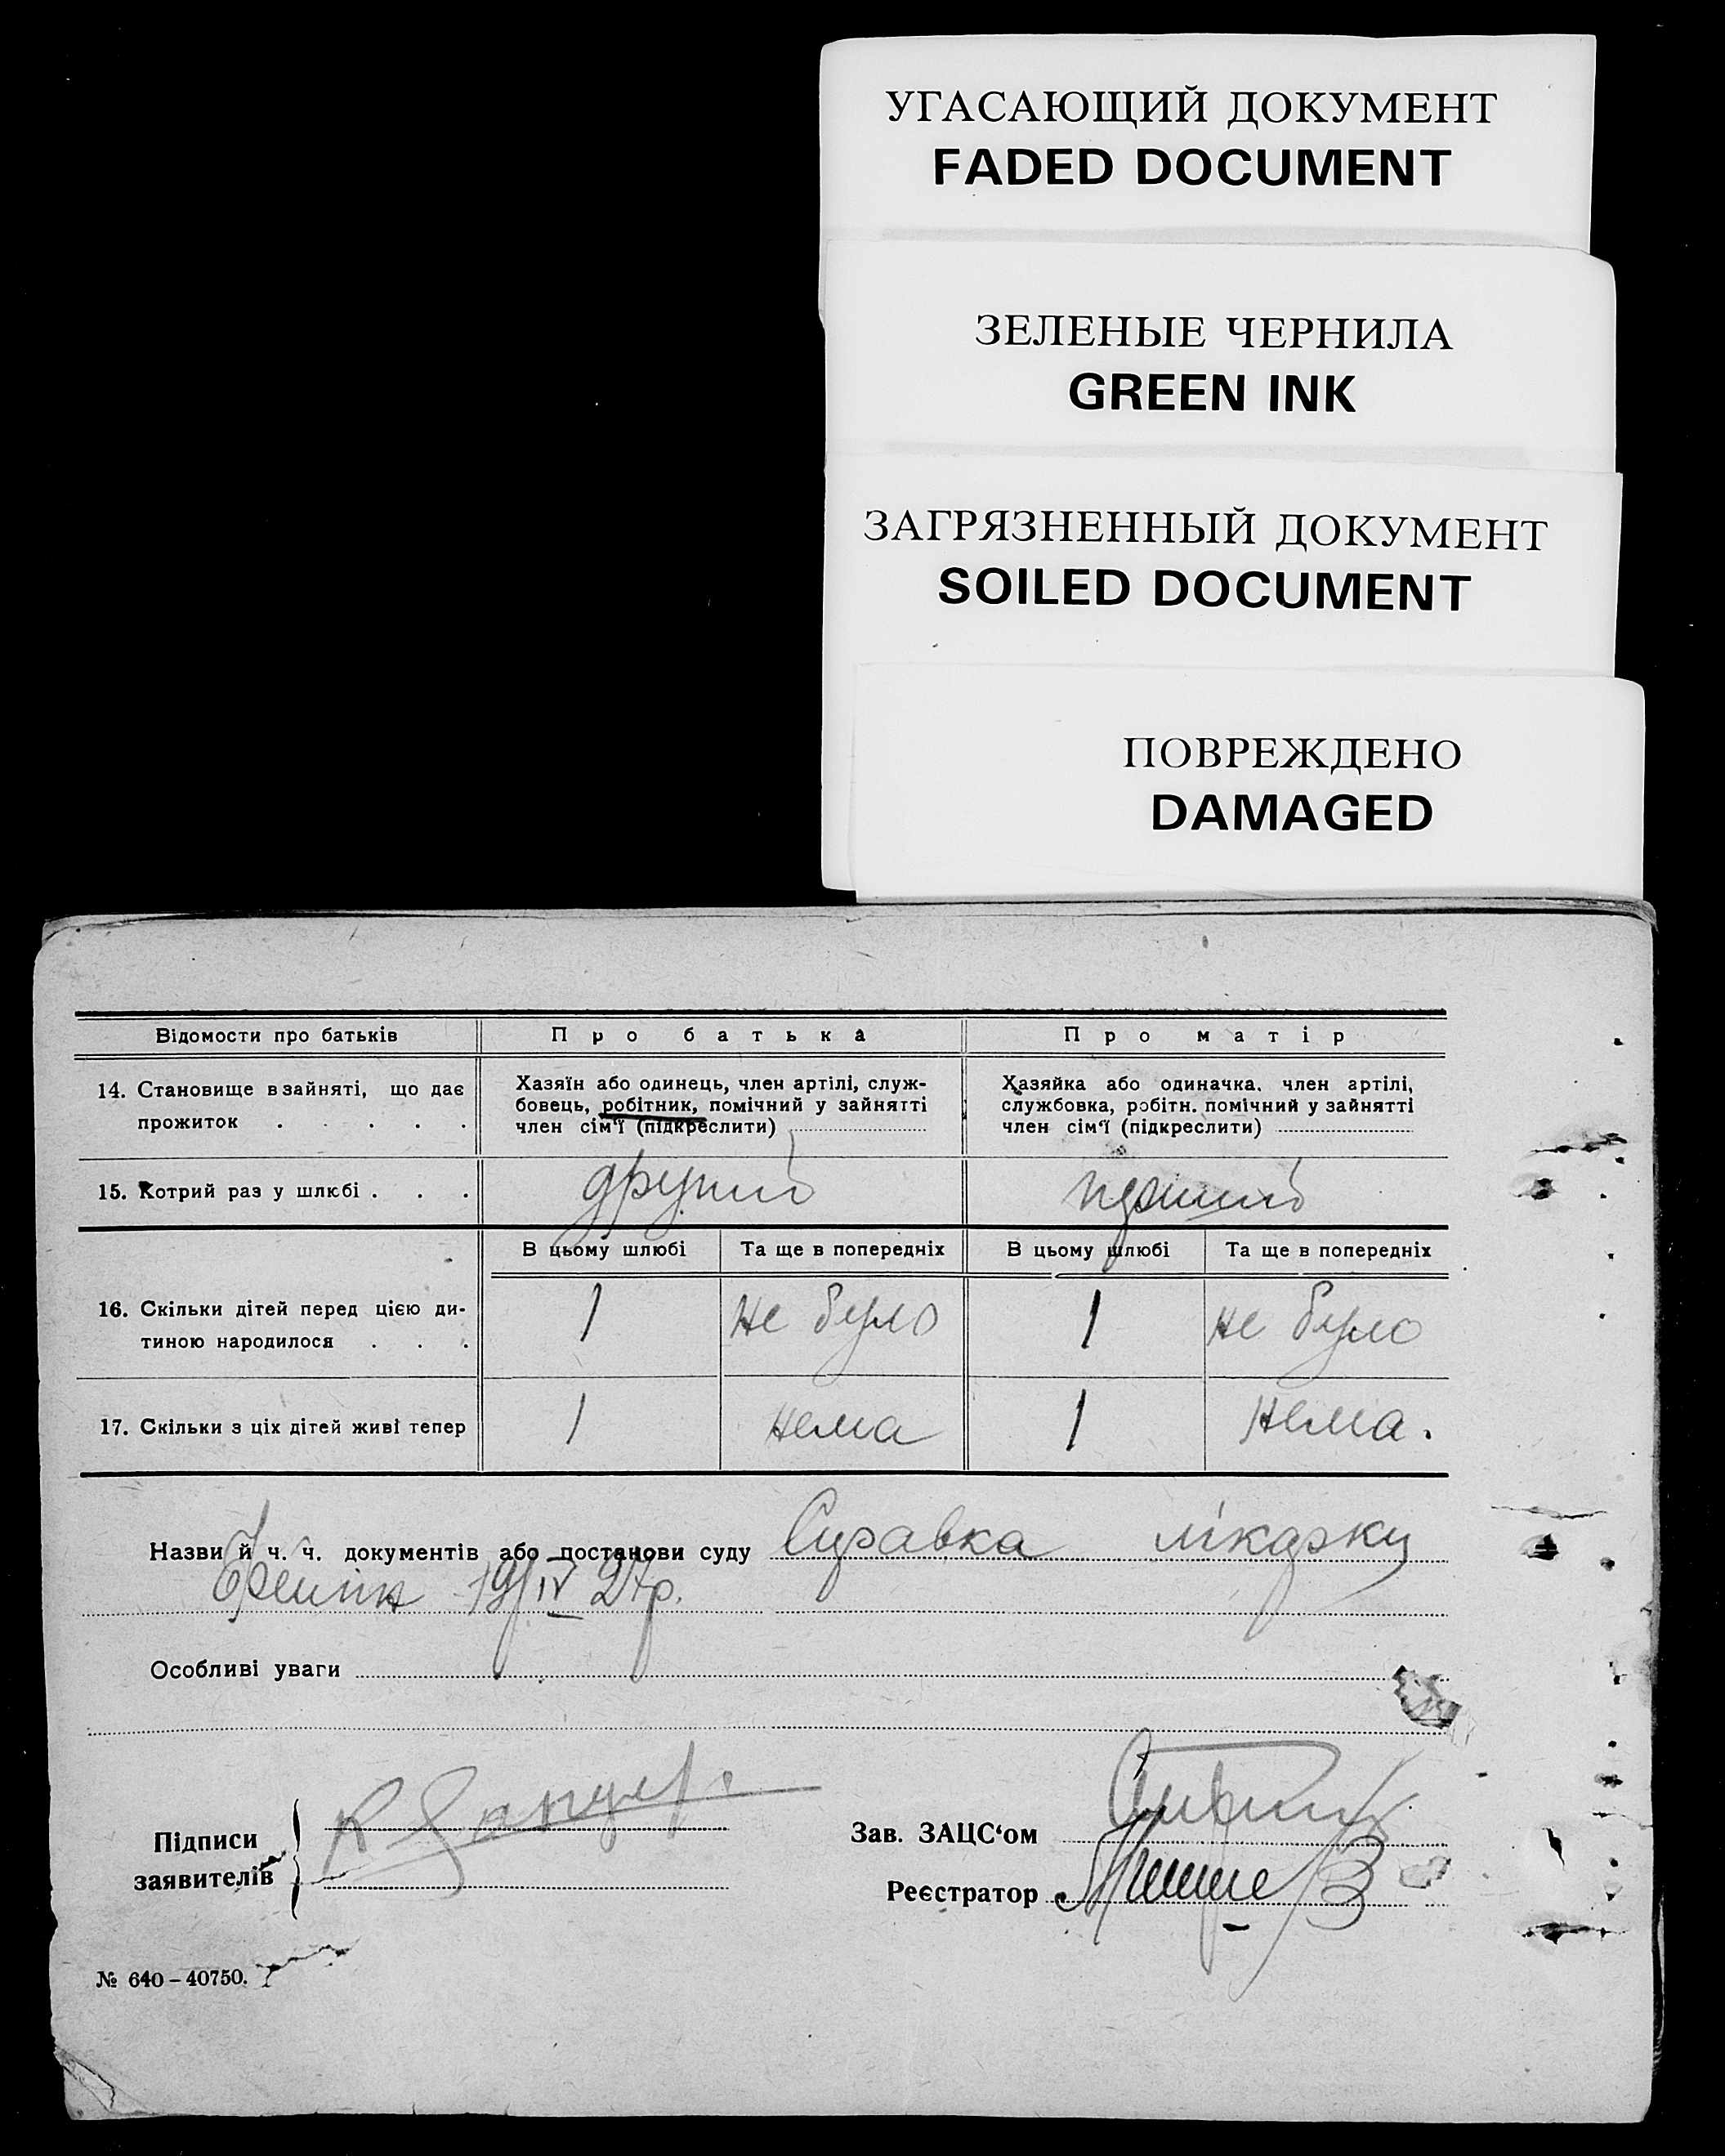 УГАСАЮЩИЙ ДОКУМЕНТ
FADED DOCUMENT
ЗЕЛЕНЫЕ ЧЕРНИЛА
GREEN INK
ЗАГРЯЗНЕННЫЙ ДОКУМЕНТ
SOILED DOCUMENT
ПОВРЕЖДЕНО
DAMAGED
Відомости про батьків Про батька Про матір
14. Становище в зайняті, що дає прожиток . . . . .
Хазяїн або одинець, член артілі, служ-
бовець, робітник, помічний у зайнятті
член сім'ї (підкреслити)
Хазяйка або одиначка. член артілі,
службовка, робітн. помічний у зайнятті
член сім'ї (підкреслити)
15. Котрий раз у шлюбі . . . другий перший
В цьому шлюбі Та ще в попередніх В цьому шлюбі Та ще в попередніх
16. Скільки дітей перед цією ди-
тиною народилося . . . 1 не було 1 не було
17. Скільки з ціх дітей живі тепер 1 нема 1 нема.
Назви й ч. ч. документів або постанови суду Справка лікарки
19/IV 27р.
Особливі уваги
Підписи
заявителів
Зав. ЗАЦС'ом
Реєстратор
№ 640-40750.